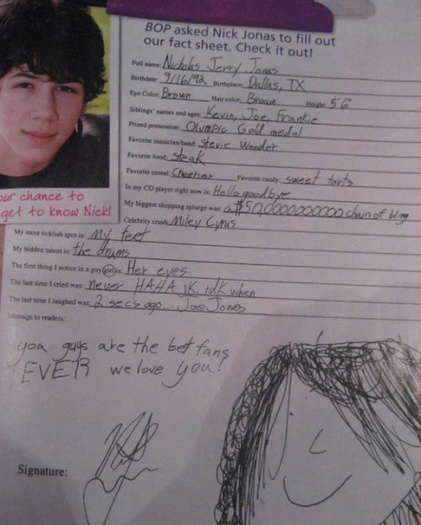 BOP asked Nick Jonas to fill out
our fact sheet. Check it out!
Full name: Nicholas Jerry Jonas
Birthdate: 9/16/92 Birthplace: Dallas, TX
Eye Color: Brown Hair color: Brown Height: 5'6"
Siblings' names and ages: Kevin, Joe, Frankie
Prized possession: Olympic Gold medal
Favorite musician/band: Stevie Wonder
Favorite food: steak
Favorite cereal: Cheerios Favorite candy: sweet tarts
In my CD player right now is: Hellogoodbye
My biggest shopping splurge was: a $50,0000000000 chain of bling
Celebrity crush: Miley Cyrus
chance to
get to know Nick!
My most ticklish spot is: My feet
My hidden talent is: the drums
The first thing I notice in a guy/girl is: Her eyes
The last time I cried was: never HAHA jk, idk when
The last time I laughed was: 2 secs ago... Joe Jonas
Message to readers:
you guys are the bet fans
EVER we love you!
Signature: